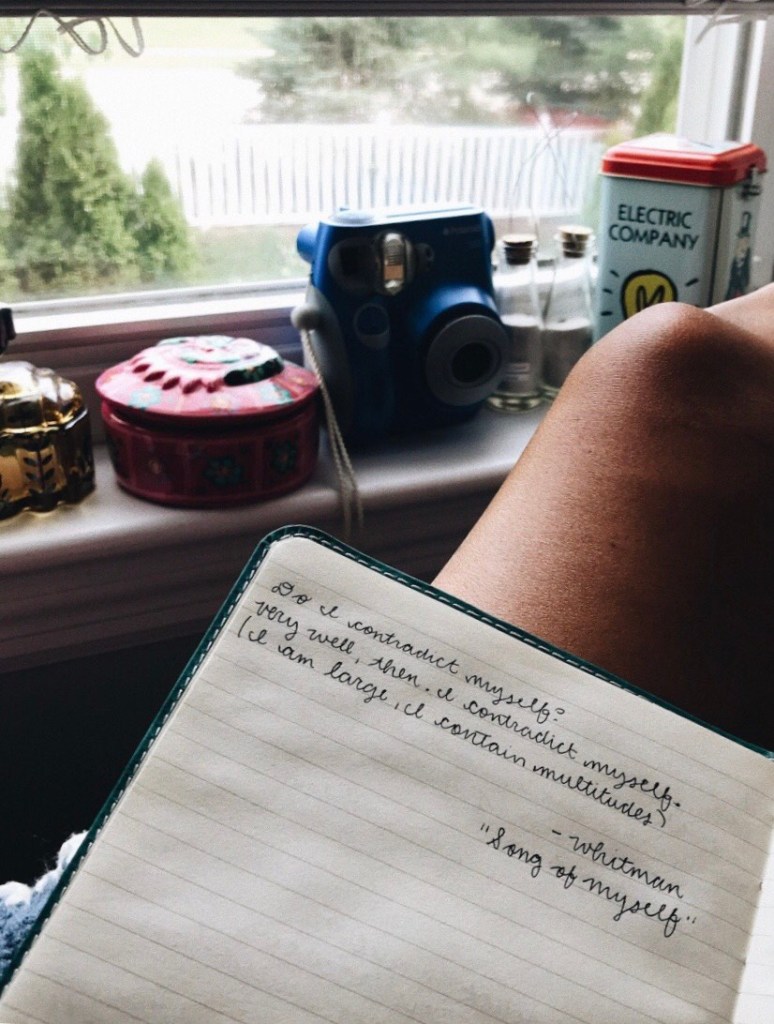 ELECTRIC
COMPANY
Do I contradict myself?
very well, then. I contradict myself.
(I am large, I contain multitudes)
- Whitman
"Song of myself"